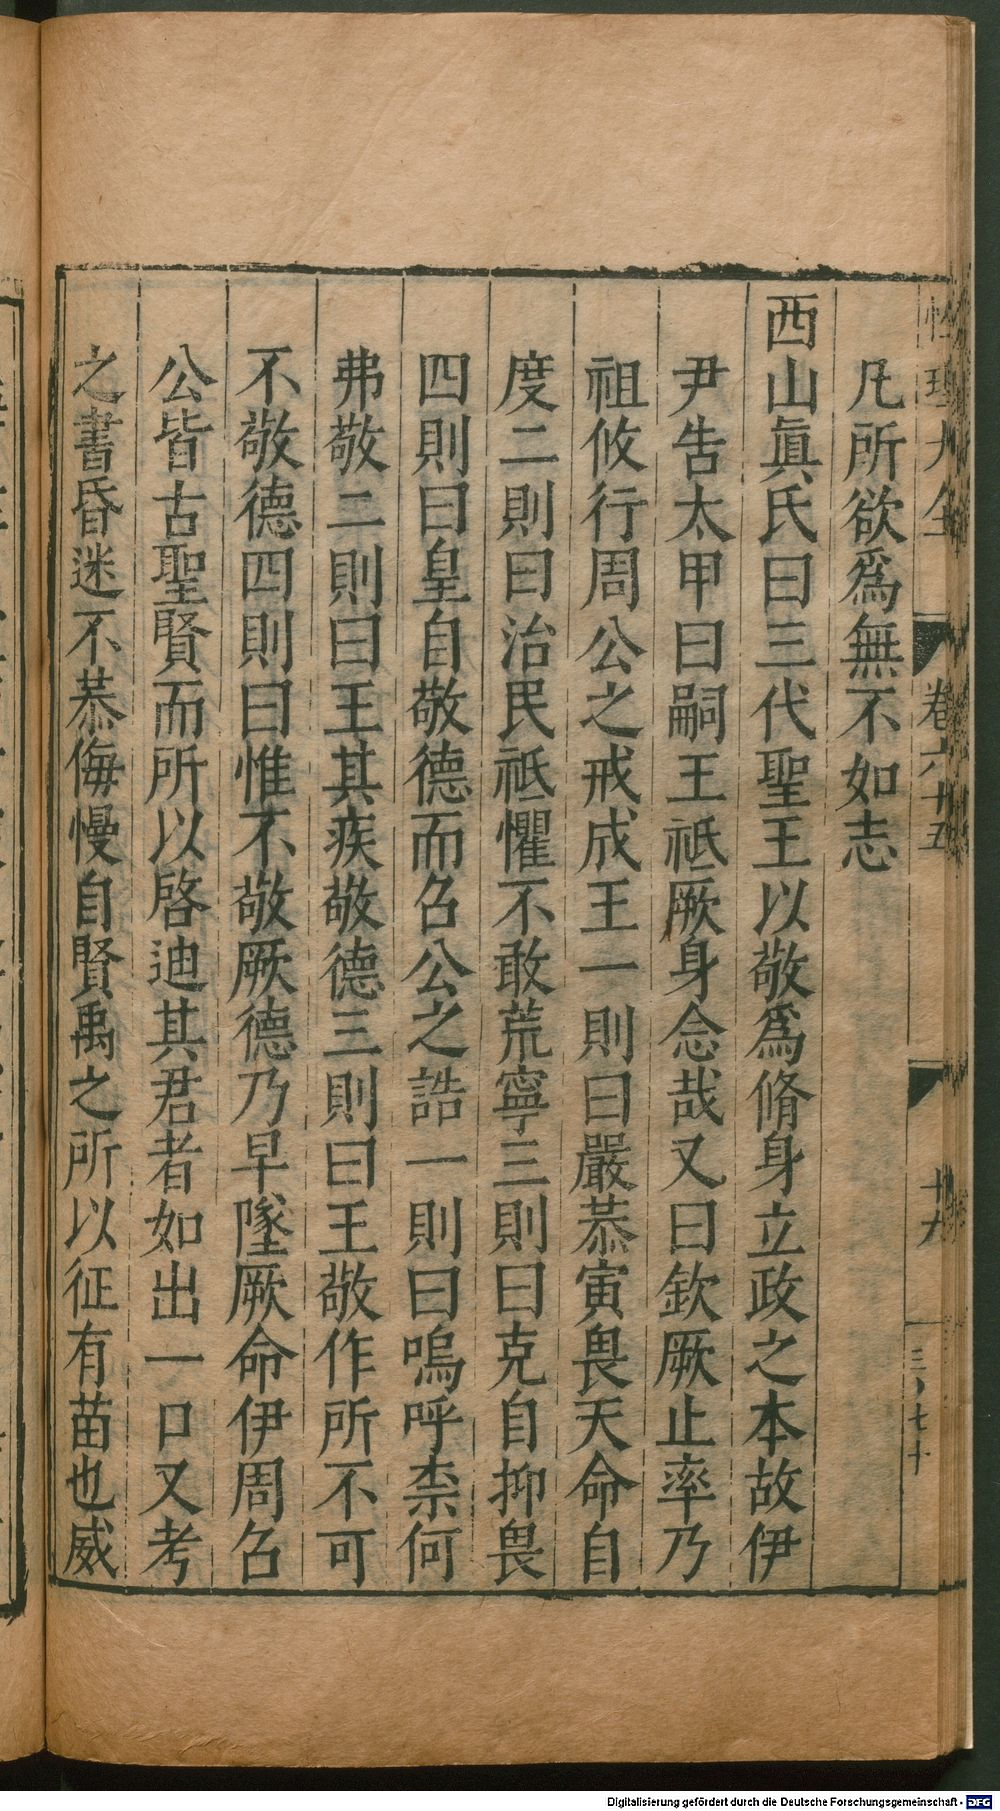 性理大全 卷六十五 十九
凡所欲爲無不如志
西山眞氏曰三代聖王以敬爲脩身立政之本故伊
尹告太甲曰嗣王祗厥身念哉又曰欽厥止率乃
祖攸行周公之戒成王一則曰嚴恭寅畏天命自
度二則曰治民祗懼不敢荒寧三則曰克自抑畏
四則曰皇自敬德而召公之誥一則曰嗚呼柰何
弗敬二則曰王其疾敬德三則曰王敬作所不可
不敬德四則曰惟不敬厥德乃早墜厥命伊周召
公皆古聖賢而所以啓迪其君者如出一口又考
之書昏迷不恭侮慢自賢禹之所以征有苗也威
Digitalisierung gefördert durch die Deutsche Forschungsgemeinschaft - DFG